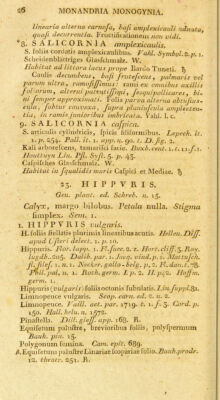 26 MONANDRIA MONOGYNIA.
linearia alterna carnosa, basi amplexicauli adnata,
quasi decurrentia. Fructificationem non vidi.
*8. SALICORNIA amplexicaulis.
S. foliis cordatis amplexicaulibus. Vahl. Symbol. 2. p. 1.
Scheidenblättriges Glasschmalz. W.
Habitat ad littora lacus prope Bardo Tuneti. ♄
Caulis decumbens, basi frutescens, palmaris vel
parum ultra, ramosissimus: rami ex omnibus axillis
foliorum, alterni patentissimi, sesquipollicares, bi-
ni semper approximati. Folia parva alterna obtusis-
sima, subtus convexa, supra planiuscula amplecten-
tia, in ramis junioribus imbricata. Vahl. l. c.
9. SALICORNIA caspica.
S. articulis cylindricis, spicis filiformibus. Lapech. It.
1. p. 254. Pall. it. 1. app. n. 90. t. D. fig. 2.
Kali arborescens, tamarisci facie. Buxb. cent. 1. t. 11. f. 1.
Houttuyn Lin. Pfl. Syst. 5. p. 43.
Caspisches Glasschmalz. W.
Habitat in squalidis maris Caspici et Mediae. ♄
23. HIPPVRIS.
Gen. plant. ed. Schreb. n. 15.
Calyx, margo bilobus. Petala nulla. Stigma
simplex. Sem. 1.
1. HIPPVRIS vulgaris.
H. foliis stellatis planis linearibus acutis. Hellen. Diss.
apud Usteri delect. 1. p. 10.
Hippuris. Flor. lapp. 1. Fl. suec. 2. 2. Hort. cliff. 3. Roy.
lugdb. 205. Dalib. par. 1. Jacq. vind. p. 1. Mattusch.
fl. silef. 1. n. 1. Necker. gallo-belg. p. 2. Fl. dan. t. 78.
Phil. pal. n. 1. Roth. germ. I. p. 2. II. p. 2. Hoffm.
germ. 1.
Hippuris (vulgaris) foliis octonis subulatis. Lin. suppl. 81.
Limnopence vulgaris. Scop. carn. ed. 2. n. 2.
Limnopence. Vaill. act. par. 1719. t. 1. f. 3. Cord. p.
150. Hall. helv. n. 1572.
Pinastella. Dill. gisss. app. 168. R.
Equisetum palustre, brevioribus foliis, polyspermum
Bauh. pin. 15.
Polygonum femina. Cam. epit. 689.
A. Equisetum palustre Linariae scopariae folio. Bauh. prodr.
12. theatr. 251. R.